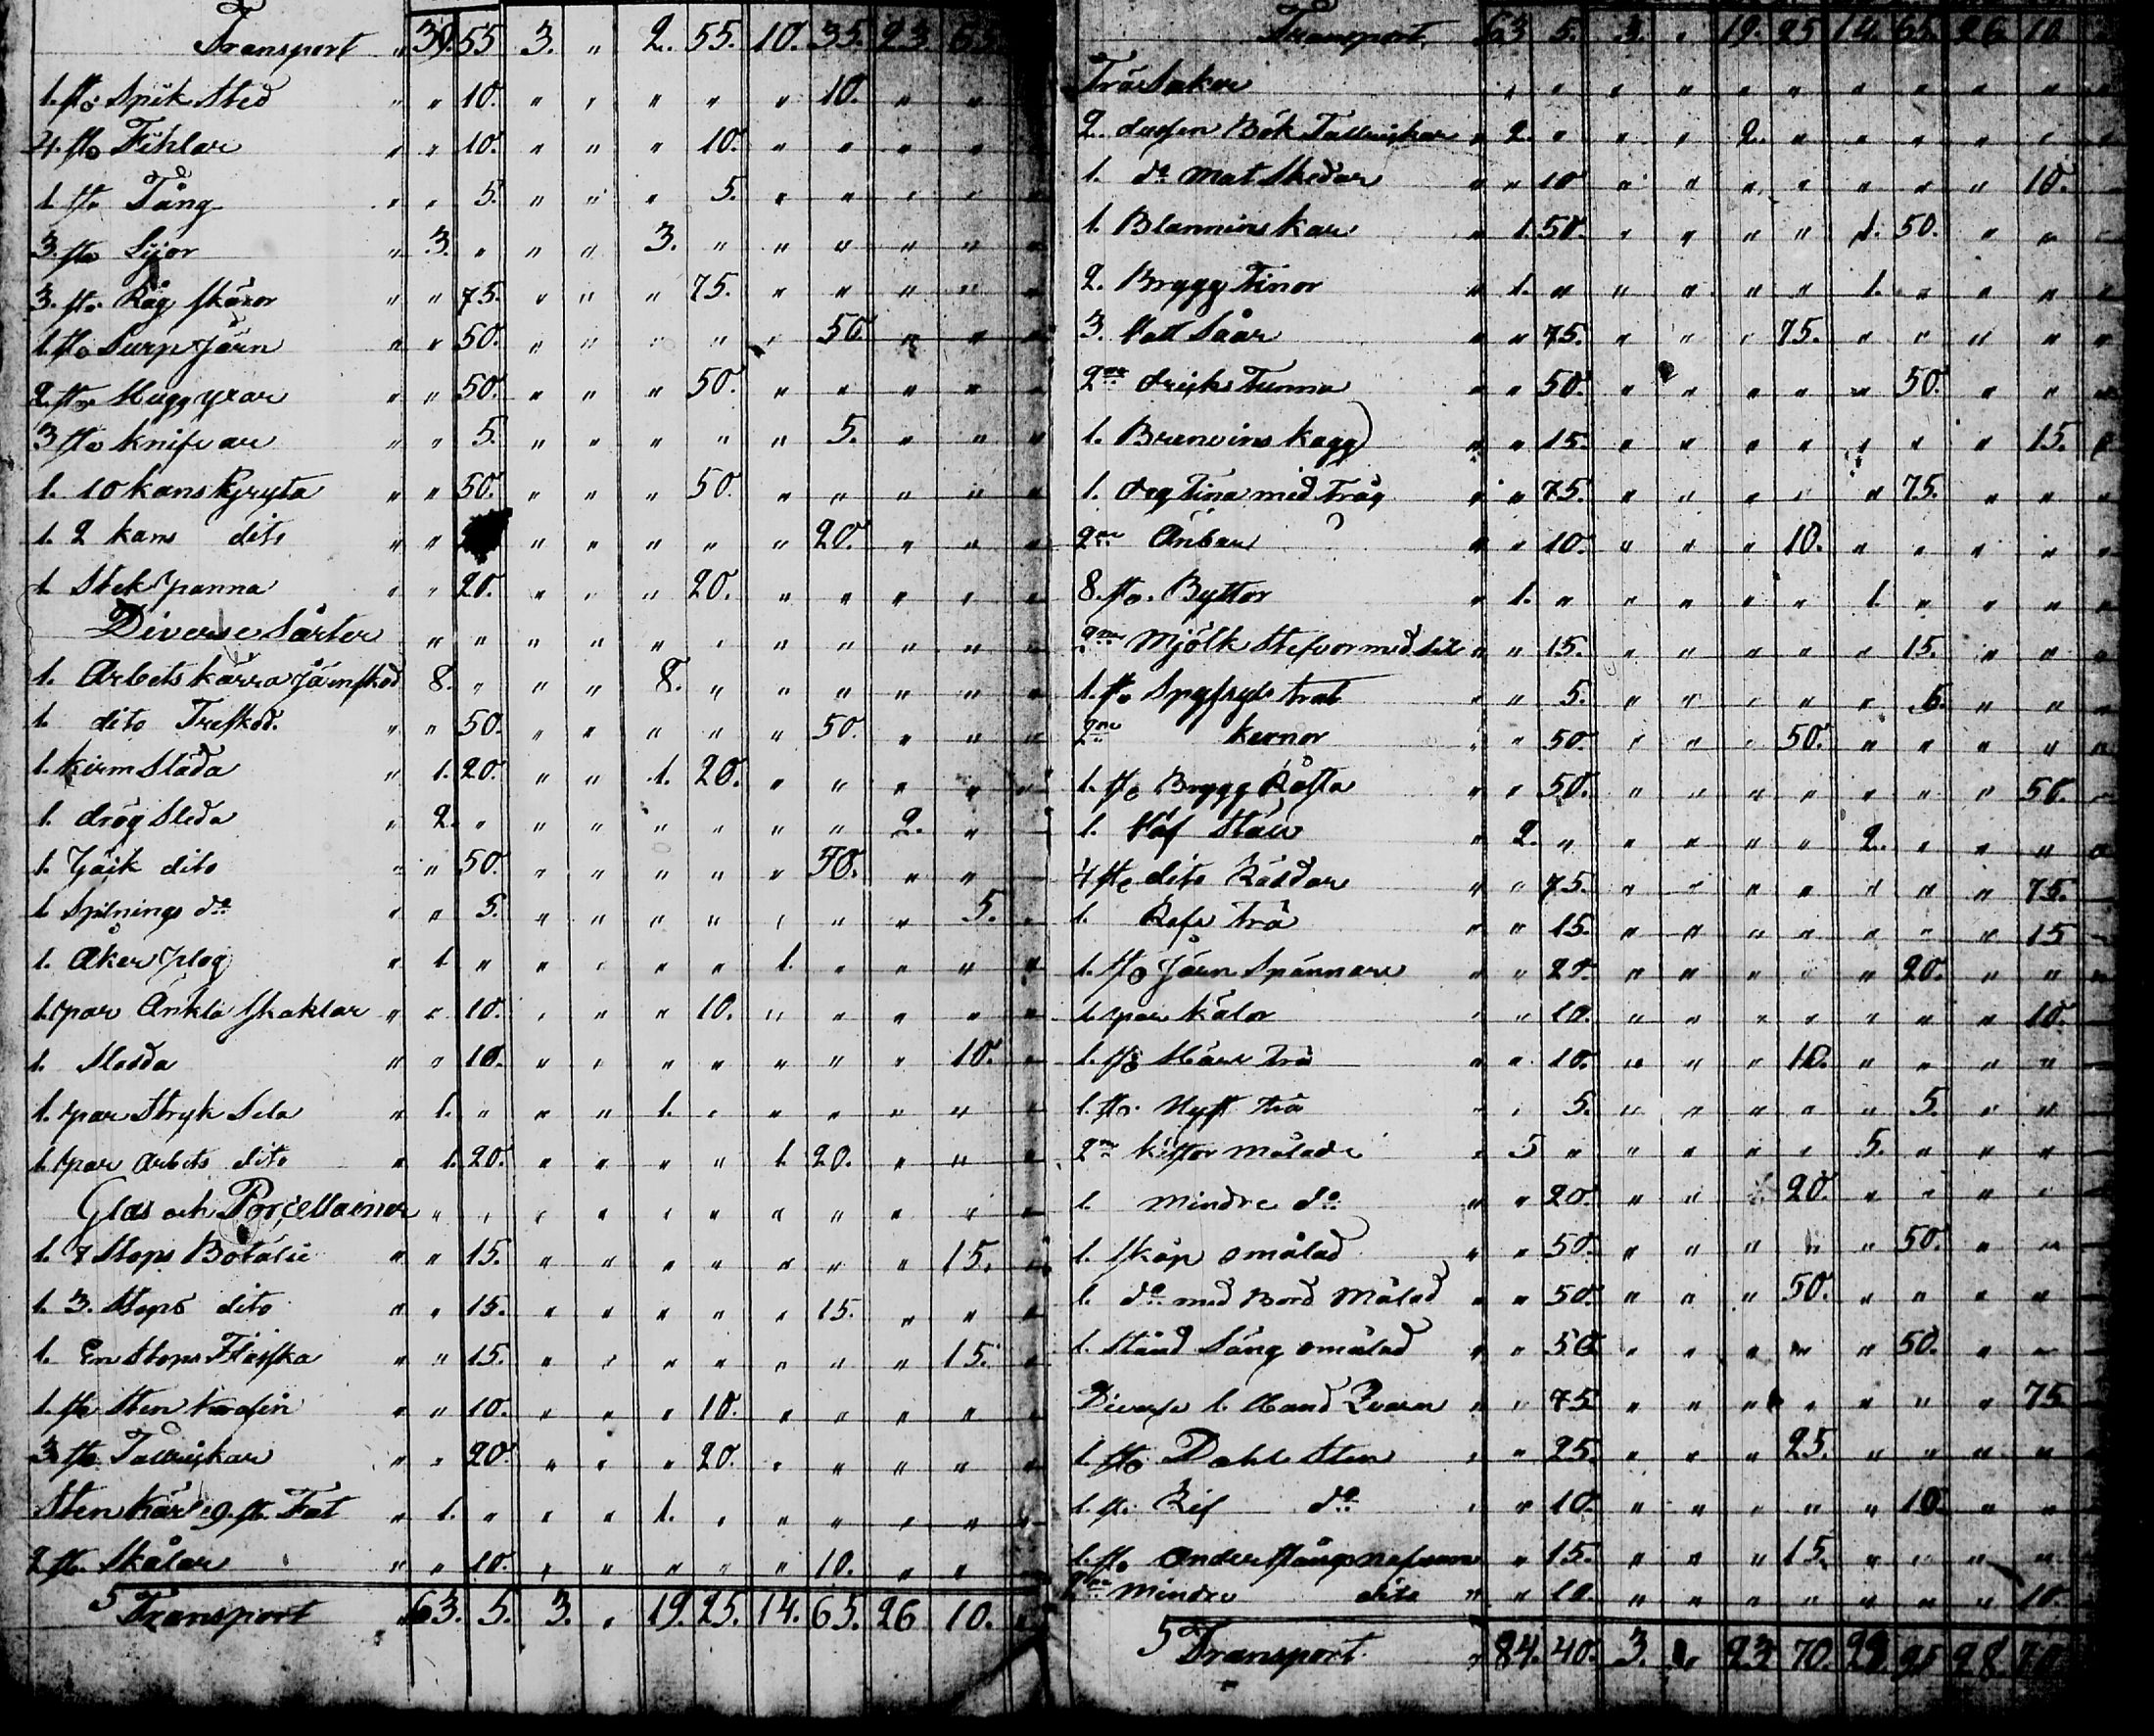 Transport " 39. 55 3. " 2. 55. 10. 35. 23. 65.
1. st. Spik Sted " " 10. " " " " " 10. " "
4. st. Fihlar " " 10. " " " 10. " " " "
1. st. Tång " " 5. " " " 5. " " " "
3. st. Lijor " 3. " " " 3. " " " " "
3. st. Råg skäror " " 75. " " " 75. " " " "
1. st. Surp Järn " " 50. " " " " " 50. " "
2. st. Hugg yxar " " 50. " " " 50. " " " "
3 st. knifvar " " 5. " " " " " 5. " "
1. 10 kans Gryta " " 50. " " " 50. " " " "
1. 2 kans dito " " " " " " " 20. " "
1 Stek panna " " 20. " " " 20. " " " "
Diverse Sårter " " " " " " " " " "
1. Arbets kärra Järnskod 8. " " " 8. " " " " "
1. dito Treskod. " " 50. " " " " " 50. " "
1. kirm Släda " 1. 20. " " 1. 20. " " " "
1. drög Sleda " 2. " " " " " " " 2. "
1. Gäik dito " " 50. " " " " " 50. " "
1 Spilnings do " " 5. " " " " " " " 5.
1. Åker plog " 1. " " " " " 1. " " "
1. par Änkla skaklar " " 10. " " " 10. " " " "
1. Sladda " " 10. " " " " " " " 10.
1. par Stryk Sela " 1. " " " 1. " " " " "
1. par arbets dito " 1. 20. " " " " 1. 20. " "
Glas och Porcellainer " " " " " " " " " "
1. 7 Stops Botälie " " 15. " " " " " " " 15.
1. 3. Stops dito " " 15. " " " " " 15. " "
1. En Stops Flaska " " 15. " " " " " " " 15.
1. st. Sten Karafin " " 10. " " " 10. " " " "
3 st. Tallrickar " " 20. " " " 20. " " " "
Sten kärl 9. st. Fat " 1. " " " 1. " " " " "
2 st. Skålar " " 10. " " " " " 10. " "
5 Transport 63. 5. 3. " 19. 25. 14. 65. 26 10.
Transport 63 5. 3. " 19. 25 14. 65. 26. 10
Träsaker " " " " " " " " " "
2. dussen Bök Tallrickar " 2. " " " 2. " " " " "
1. do Mat Skedar " " 10 " " " " " " " 10.
1. Blannins kar " 1. 50. " " " " 1. 50. " "
2. Brygg Tinor " 1. " " " " " 1. " " "
3. Vatt Såar " " 75. " " " 75. " " " "
2ne dricks Tunna " " 50. " " " " " 50. " "
1. Brenvins kagg " " 15. " " " " " " " 15.
1. deg Tina med Tråg " " 75. " " " " " 75. " "
2ne Änbar " " 10. " " " 10. " " " "
8. st. Byttor " 1. " " " " " 1. " " "
2ne Mjölk Stefvor med Sil " " 15. " " " " " 15. " "
1. st. trat " " 5. " " " " " 5. " "
2ne kernor " " 50. " " " 50. " " " "
1. st. Brygg Råsta " " 50. " " " " " " " 50.
1. Väf Ståle " 2. " " " " " 2. " " "
4 st. dito Räddar " " 75. " " " " " " " 75.
1. Refe Trä " " 15. " " " " " " " 15
1. st. Järn Spännare " " 20. " " " " " 20. " "
1. par kålor " " 10. " " " " " " " 10.
1. st. Härf Trä " " 10. " " " 10. " " " "
1. st. Nyst trä " " 5. " " " " " 5. " "
2ne kistor målade " 5 " " " " " 5. " " "
1. Mindre do " " 20. " " " 20. " " " "
1. skåp omålad " " 50. " " " " " 50. " "
1. do med Bord målad " " 50. " " " 50. " " " "
1. Stånd Säng omålad " " 50. " " " " " 50. " "
Diverse 1. Hand Qvarn " " 75 " " " " " " " 75
1. st. Dahl Sten " " 25. " " " 25. " " " "
1. st. Rif do " " 10. " " " " " 10 " "
1. st. " 15. " " " 15. " " " "
2ne Mindre dito " " 10. " " " " " " " 10.
5 Transport " 84. 40. 3. " 23 70. 28.